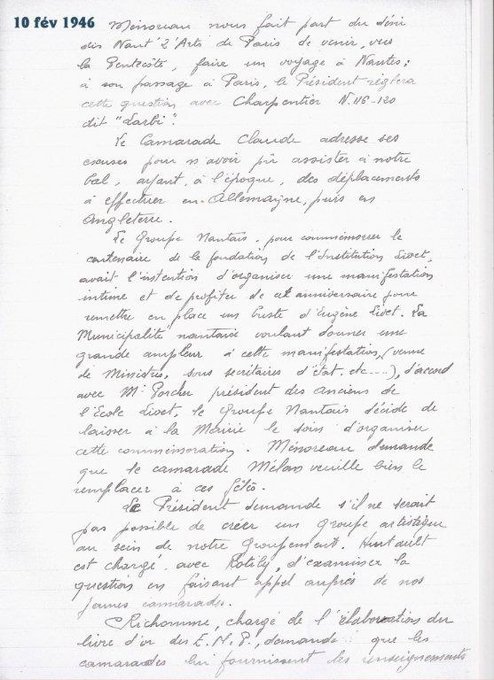 10 fév 1946
Ménoreau nous fait part du désir
des Nant'Z'Arts de Paris de venir, vers
la Pentecôte, faire un voyage à Nantes ;
à son passage à Paris, le Président règlera
cette question avec Charpentier N.46-120
dit "Larbi".
Le Camarade Claude adresse ses
excuses pour n'avoir pû assister à notre
bal, ayant, à l'époque, des déplacements
à effectuer en Allemagne, puis en
Angleterre.
Le Groupe Nantais, pour commémorer le
centenaire de la fondation de l'Institution Livet,
avait l'intention d'organiser une manifestation
intime et de profiter de cet anniversaire pour
remettre en place un buste d'Eugène Livet. La
Municipalité nantaise voulant donner une
grande ampleur à cette manifestation, (venue
de Ministres, sous secrétaires d'état, etc....), d'accord
avec Mr Porcher, président des anciens de
l'Ecole Livet, le Groupe Nantais décide de
laisser à la Mairie le soin d'organiser
cette commémoration. Ménoreau demande
que le camarade Mélan veuille bien le
remplacer à ces fêtes.
Le Président demande s'il ne serait
pas possible de créer un groupe artistique
au sein de notre Groupement. Huntault
est chargé avec Rotily, d'examiner la
question en faisant appel auprès de nos
jeunes camarades.
Richomme, chargé de l'élaboration du
livre d'or des E.N.P., demande que les
camarades lui fournissent les renseignements